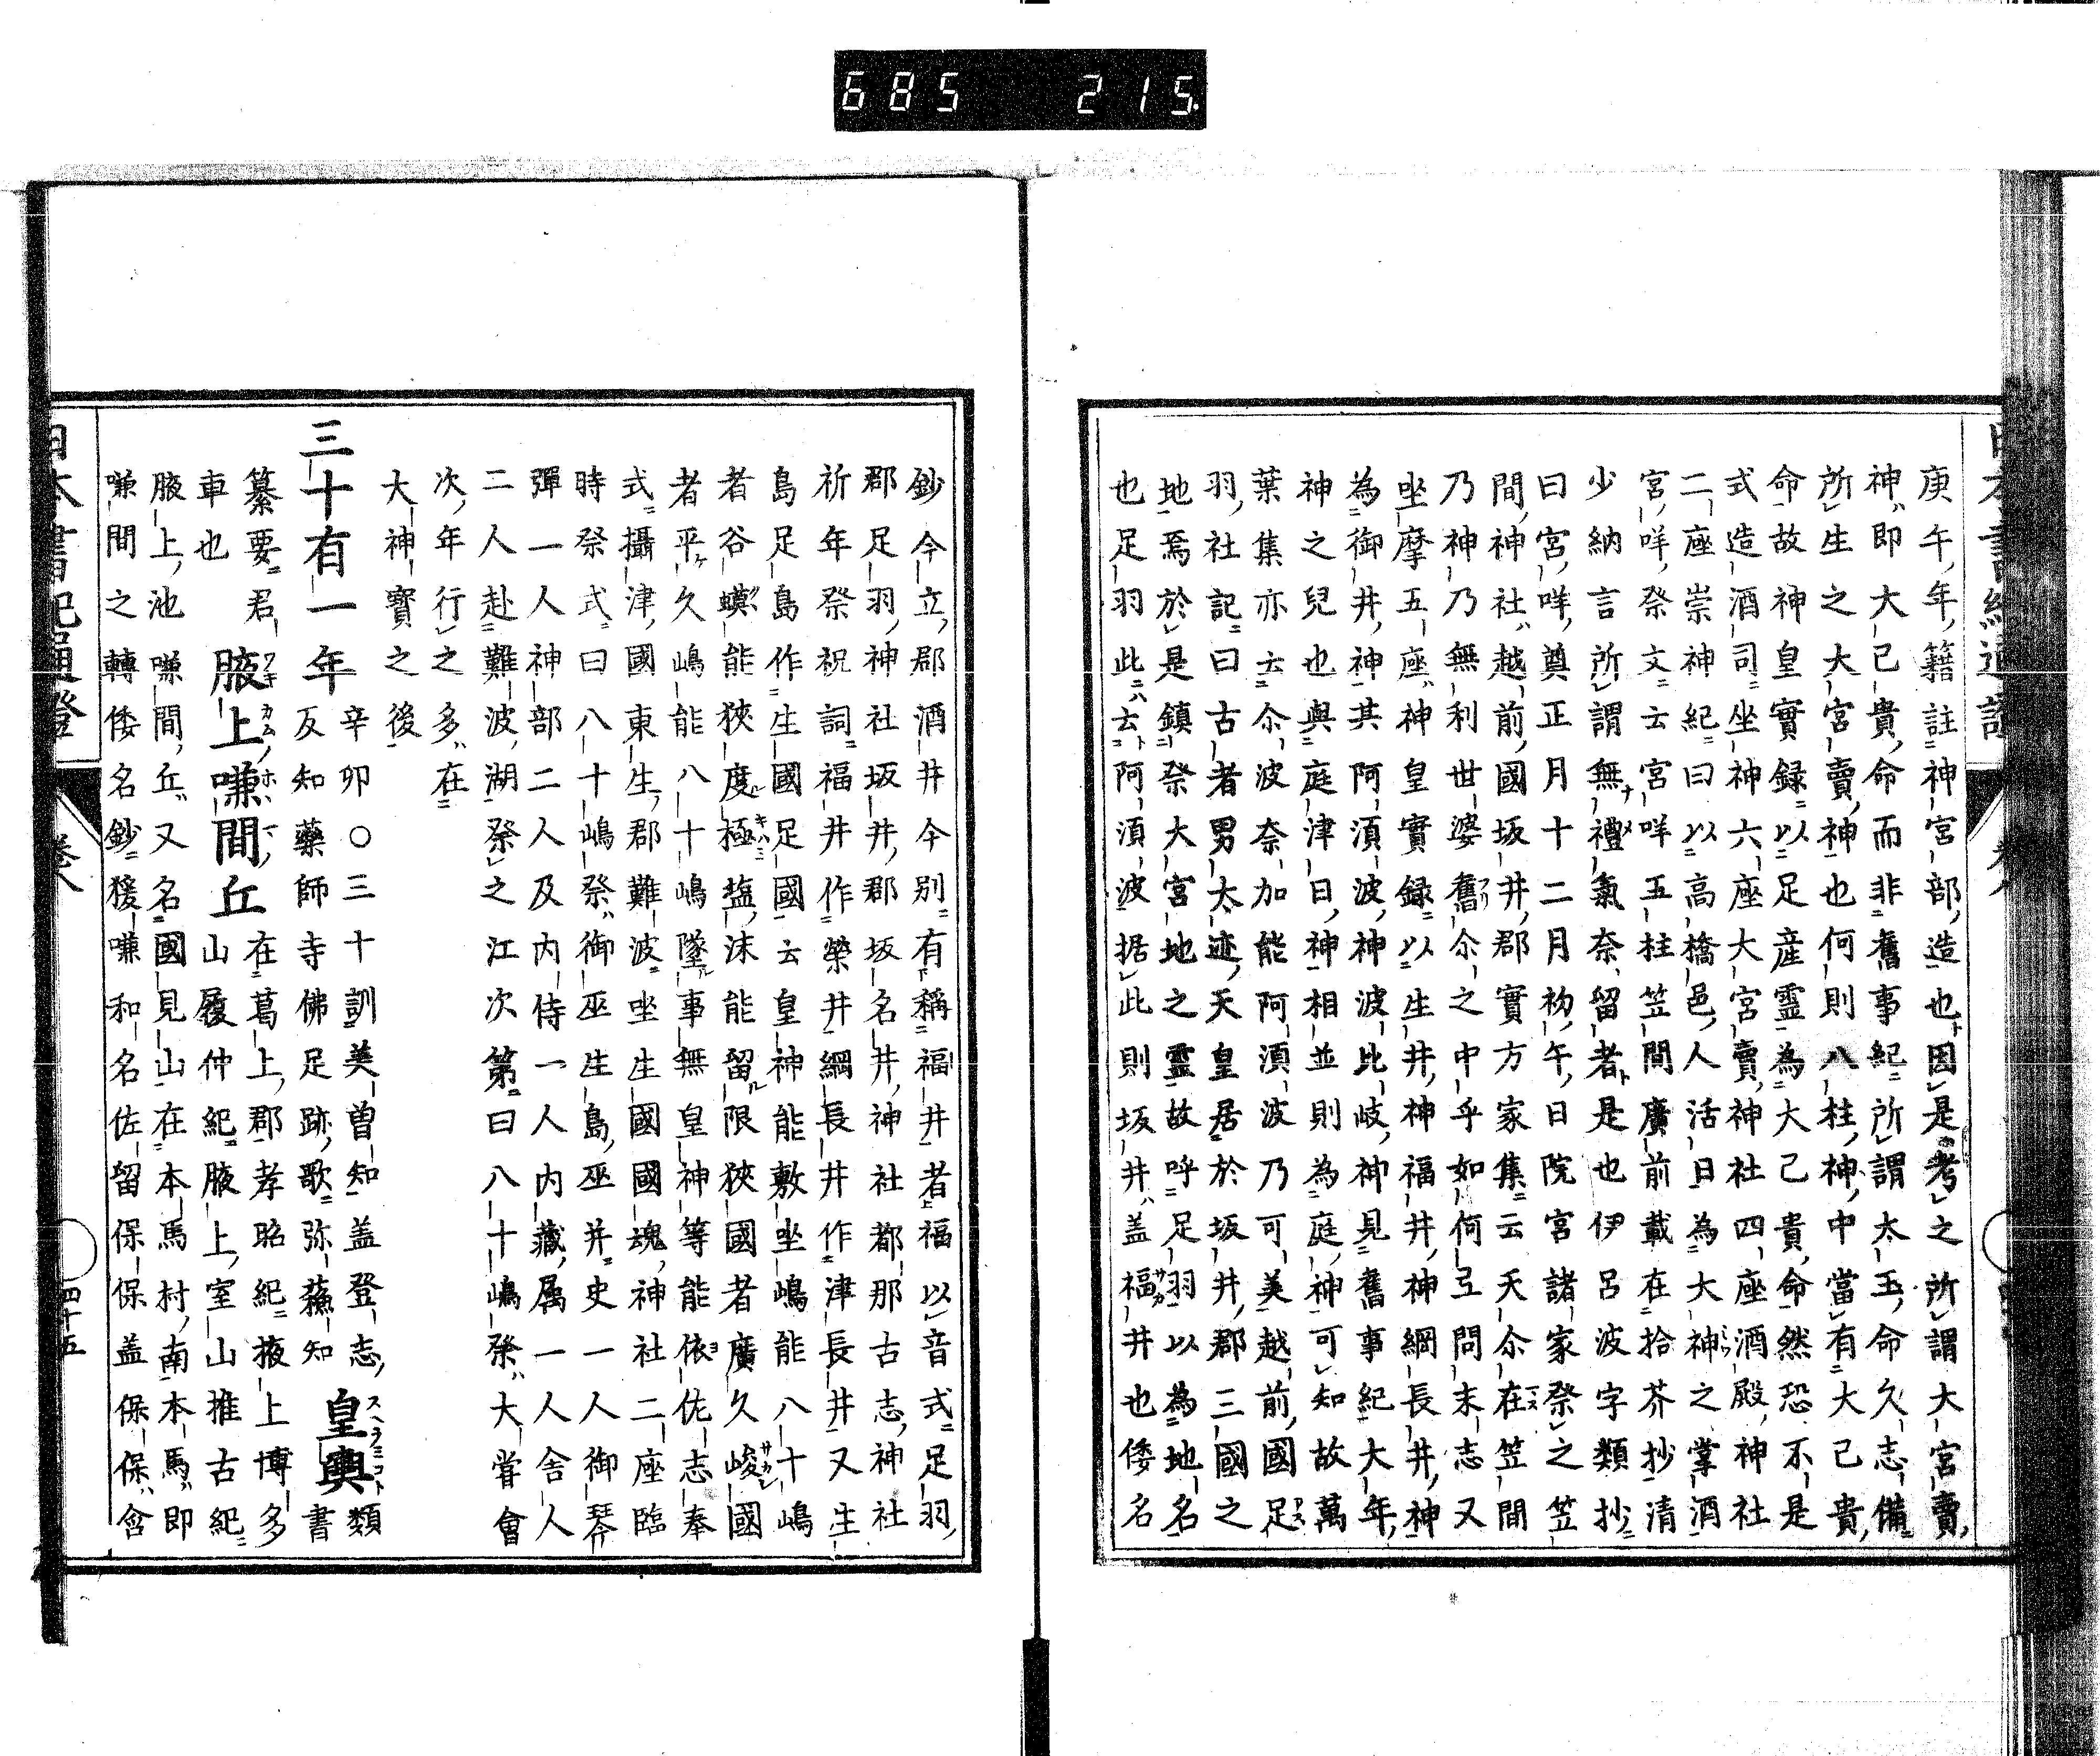 685 215.
庚午年籍註神宮部造也因是考之所謂大宮賣
神即大己貴命而非舊事紀所謂太玉命久志備
所生之大宮賣神也何則八柱神中當有大己貴
命故神皇實録以足産霊為大己貴命然恐不是
式造酒司坐神六座大宮賣神社四座酒殿神社
二座崇神紀曰以高橋邑人活日為大神之掌酒
宮咩祭文云宮咩五柱笠間廣前載在拾芥抄清
少納言所謂無禮氣奈留者是也伊呂波字類抄
曰宮咩奠正月十二月初午日院宮諸家祭之笠
間神社越前國坂井郡實方家集云天尒在笠間
乃神乃無利世婆舊尒之中乎如何弖問末志又
坐摩五座神皇實録以生井神福井神綱長井神
為御井神其阿湏波神波比岐神見舊事紀大年
神之兒也與庭津日神相並則為庭神可知故萬
葉集亦云尒波奈加能阿湏波乃可美越前國足
羽社記曰古者男太迹天皇居於坂井郡三國之
地焉於是鎮祭大宮地之霊故呼足羽以為地名
也足羽此云阿湏波据此則坂井盖福井也倭名
鈔今立郡酒井今别有稱福井者福以音式足羽
郡足羽神社坂井郡坂名井神社都那古志神社
祈年祭祝詞福井作榮井綱長井作津長井又生
島足島作生國足國云皇神能敷坐嶋能八十嶋
者谷蟆能狹度極塩沫能留限狹國者廣久峻國
者平久嶋能八十嶋墜事無皇神等能依佐志奉
式攝津國東生郡難波坐生國國魂神社二座臨
時祭式曰八十嶋祭御巫生島巫并史一人御琴
彈一人神部二人及内侍一人内藏属一人舎人
二人赴難波湖祭之江次第曰八十嶋祭大甞會
次年行之多在
大神寶之後
三十有一年 辛卯○三十訓美曽知盖登志
反知藥師寺佛足跡歌弥蘓知 皇輿 類書
纂要君
車也 腋上嗛間丘 在葛上郡孝昭紀掖上博多
山履仲紀腋上室山推古紀
腋上池嗛間丘又名國見山在本馬村南本馬即
嗛間之轉倭名鈔猨嗛和名佐留保保盖保保含
日本書紀通證 卷八 四十五